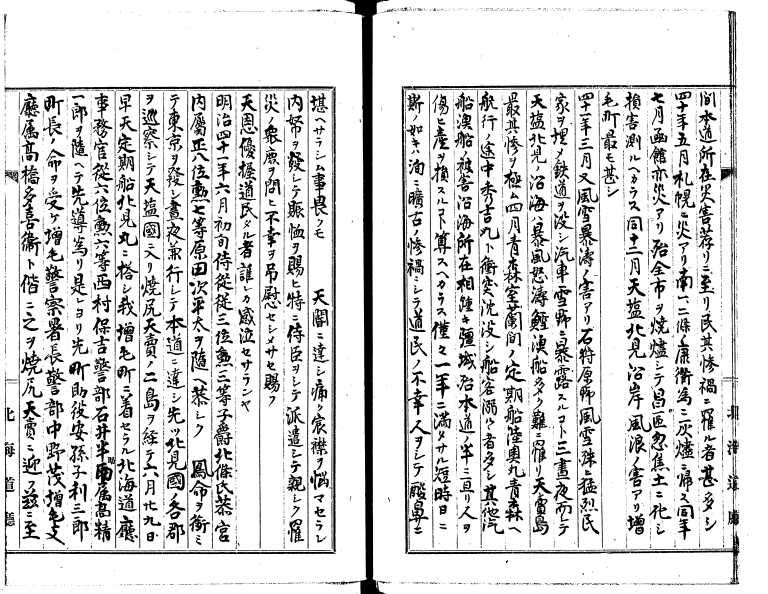 間本道所在災害荐リニ至リ民其惨禍ニ罹ル者甚多シ
四十年五月札幌ニ火アリ南一二條ノ康衢為ニ灰燼ニ帰ス同年
七月函館亦災アリ殆全市ヲ焼燼シテ昌區忽焦土ニ化シ
損害測ルヘカラス同十二月天塩北見沿岸風浪ノ害アリ増
毛町最モ甚シ
四十一年三月又風雪暴濤ノ害アリ石狩原野風雪殊ニ猛烈民
家ヲ埋メ鉄道ヲ没シ汽車雪野ニ暴露スルコト三晝夜而シテ
天塩北見ノ沿海ハ暴風怒濤鱈漁船多ク難ニ罹リ天賣島
最其惨ヲ極ム四月青森室蘭間ノ定期船陸奥丸青森ヘ
航行ノ途中秀吉丸ト衝突沈没シ船客溺ル者多シ其他汽
船漁船ノ被害沿海所在相踵キ彊域沿本道ノ半ニ亘リ人ヲ
傷ヒ産ヲ損スルコト算スヘカラス僅々一年ニ満タサル短時日ニ
斯ノ如キハ洵ニ曠古ノ惨禍ニシテ道民ノ不幸人ヲシテ酸鼻ニ
北海道廳
堪ヘサラシム事畏クモ 天閽ニ達シ痛ク宸襟ヲ悩マセラレ
内帑ヲ發シテ賑恤ヲ賜ヒ特ニ侍臣ヲシテ派遣シテ親シク罹
災ノ衆庶ヲ問ヒ不幸ヲ吊慰セシメサセ賜フ
天恩優握道民タル者誰レカ感泣セサランヤ
明治四十一年六月初旬侍従従三位勲三等子爵北條氏恭宮
内屬正八位勲七等原田次平太ヲ隨ヘ恭シク 鳳命ヲ銜ミ
テ東京ヲ發シ晝夜兼行シテ本道ニ達シ先ツ北見國ノ各郡
ヲ巡察シテ天塩國ニ入リ焼尻天賣ノ二島ヲ経テ六月廿九日
早天定期船北見丸ニ搭シ我増毛町ニ着セラル北海道廳
事務官従六位勲六等西村保吉警部石井半 屬高精
一郎ヲ隨ヘテ先導為リ是ヨリ先町助役安孫子利三郎
町長ノ命ヲ受ケ増毛警察署長警部中野茂増毛支
廳属高橋多喜衛ト偕ニ之ヲ焼尻天賣ニ迎フ茲ニ至
北海道廳